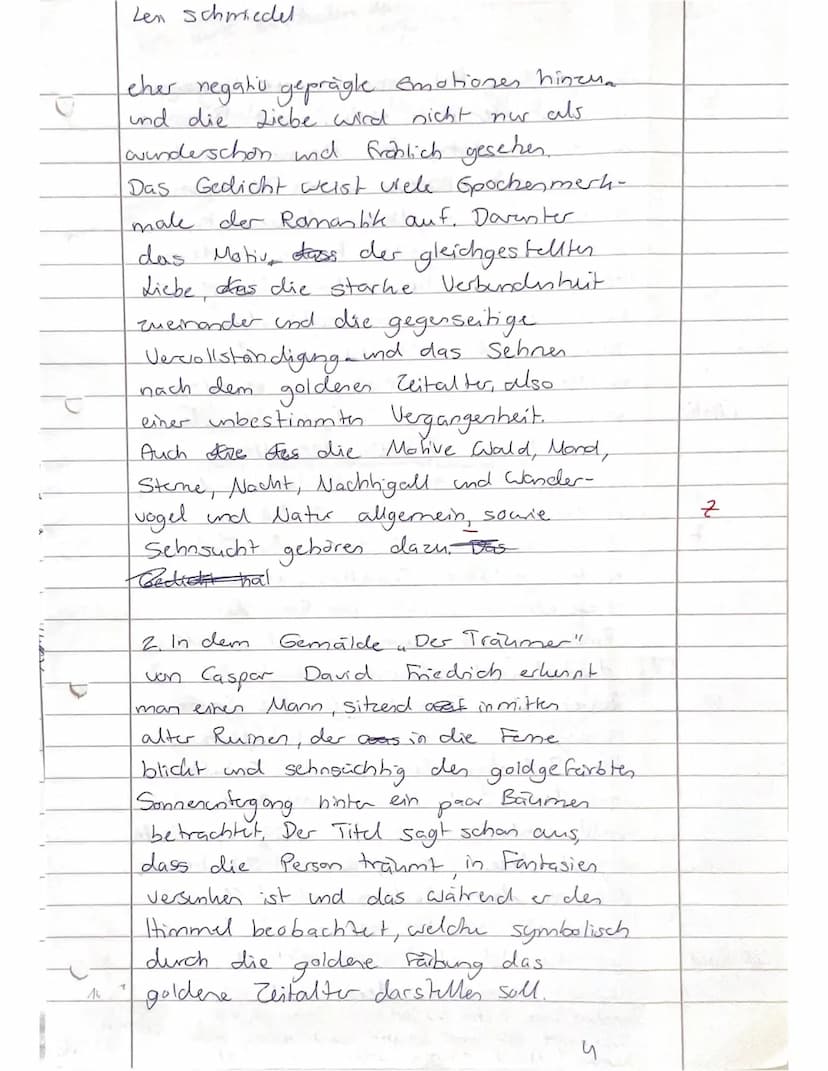 Len Schmiedel
eher negativ geprägte Emotionen hinzu
und die Liebe wird nicht nur als
wunderschön und fröhlich gesehen.
Das Gedicht weist viele Epochenmerk-
male der Romantik auf. Darunter
das Motiv dass der gleichgestellten
Liebe, das die starke Verbundenheit
zueinander und die gegenseitige
Vervollständigung und das Sehnen
nach dem goldenen Zeitalter, also
einer unbestimmten Vergangenheit.
Auch die das die Motive Wald, Mond,
Sterne, Nacht, Nachtigall und Wander-
vogel und Natur allgemein, sowie
Z
Sehnsucht gehören dazu. Das
Gedicht hat
2. In dem Gemälde „Der Träumer"
von Caspar David Friedrich erkennt
man einen Mann, sitzend auf inmitten
alter Ruinen, der in die Ferne
blickt und sehnsüchtig den goldgefärbten
Sonnenuntergang hinter ein paar Bäumen
betrachtet. Der Titel sagt schon aus,
dass die Person träumt, in Fantasien
versunken ist und das während er den
Himmel beobachtet, welche symbolisch
durch die goldene Färbung das
goldene Zeitalter darstellen soll.
4